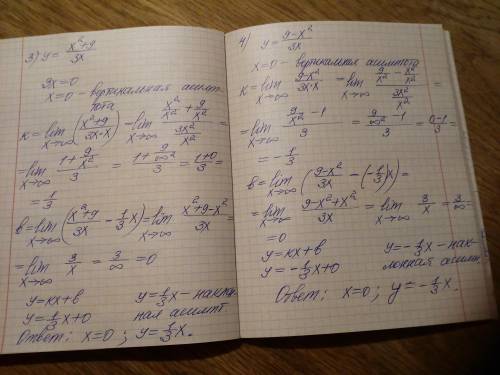 3) y = (x²+9)/3x
3x=0
x=0 - вертикальная асимп-
тота
k = lim x→∞ ((x²+9)/(3x·x)) = lim x→∞ (x²/x² + 9/x²)/(3x²/x²) =
= lim x→∞ (1+9/x²)/3 = (1+9/∞²)/3 = (1+0)/3 =
= 1/3
b = lim x→∞ ((x²+9)/3x - 1/3 x) = lim x→∞ (x²+9-x²)/3x =
= lim x→∞ 3/x = 3/∞ = 0
y=kx+b y=1/3 x - накло-
y=1/3 x+0 ная асимпт
Ответ: x=0; y=1/3 x.
4) y = (9-x²)/3x
x=0 - вертикальная асимптота
k = lim x→∞ (9-x²)/(3x·x) = lim x→∞ (9/x² - x²/x²)/(3x²/x²) =
= lim x→∞ (9/x² - 1)/3 = (9/∞² - 1)/3 = (0-1)/3 =
= -1/3
b = lim x→∞ ((9-x²)/3x - (-1/3)x) =
= lim x→∞ (9-x²+x²)/3x = lim x→∞ 3/x = 3/∞ =
=0
y=kx+b y=-1/3 x - нак-
y=-1/3 x+0 лонная асимпт.
Ответ: x=0; y=-1/3 x.